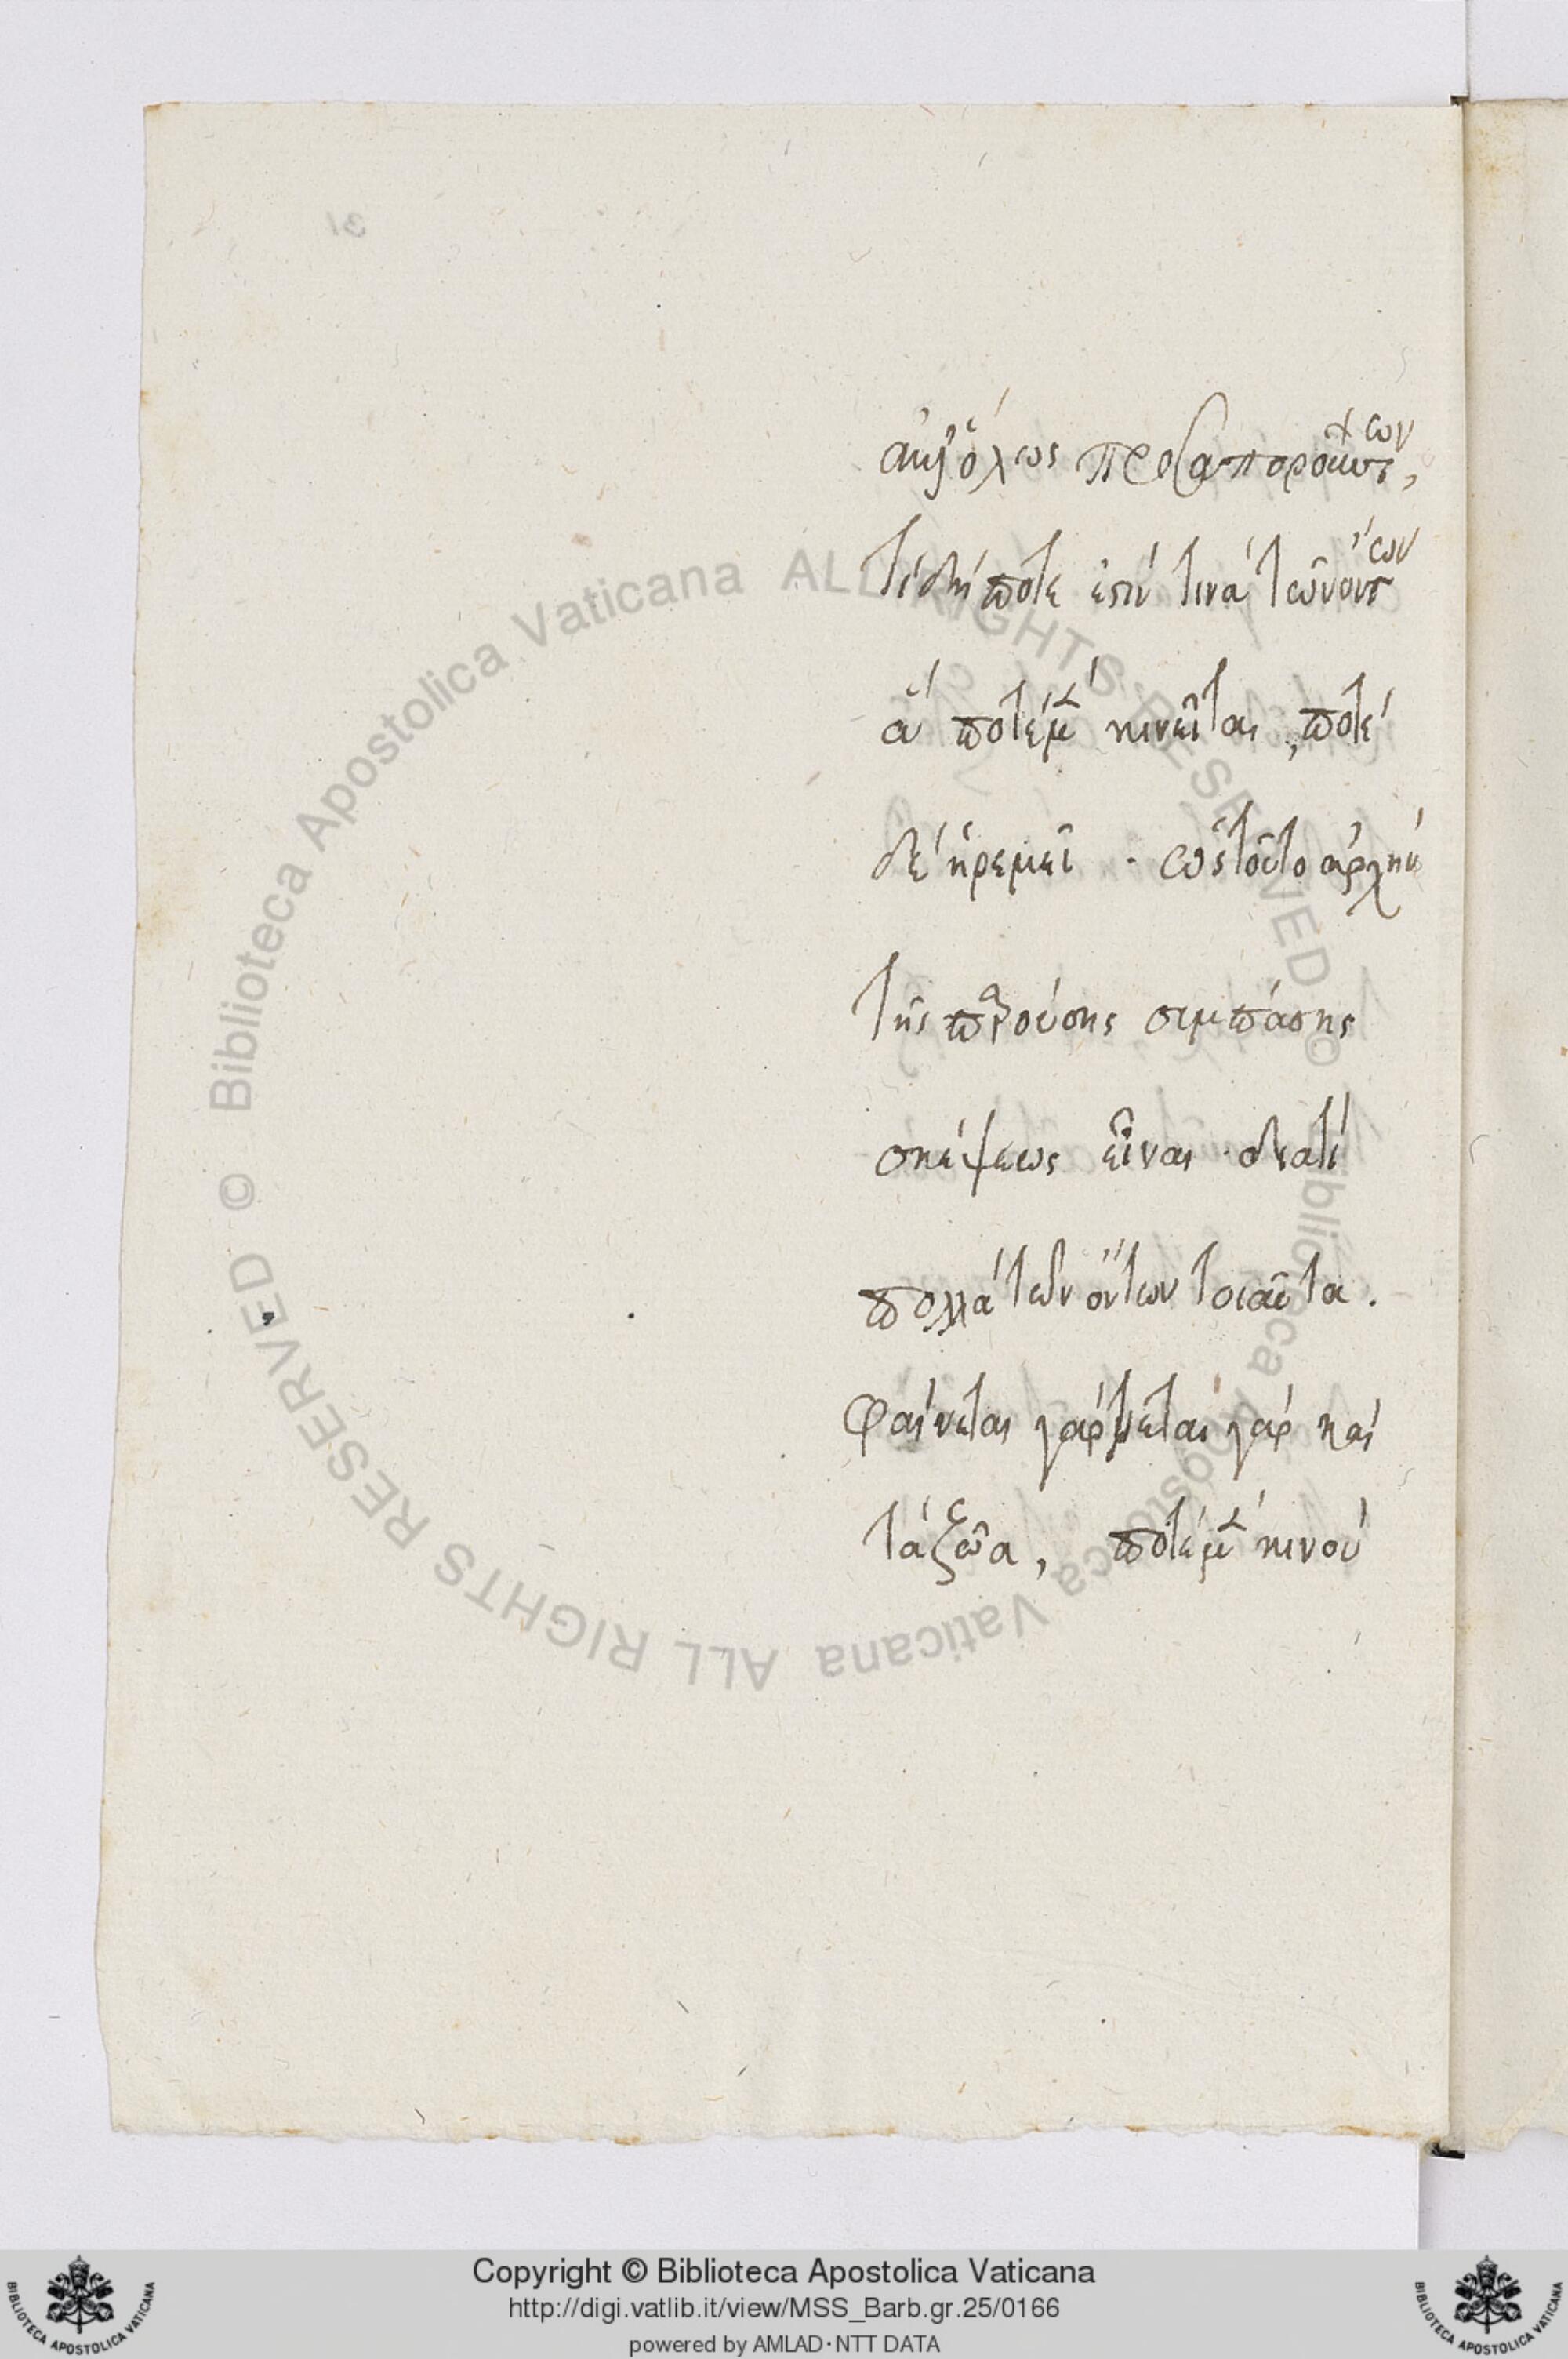 ὅλως
τί δή ποτε ἐστὶν τινὰ τῶν ὄντων
ἃ ποτὲ μ(ὲν) κινεῖται, ποτὲ
δὲ ἠρεμεῖ · ὡς τοῦτο ἀρχὴν
τῆς παρούσης συμπάσης
σκέψεως εἶναι · διατί
πολλὰ τῶν ὄντων τοιαῦτα.
φαίνεται γὰρ γὰρ καὶ
τὰ ζῶα, ποτὲ μ(ὲν) κινού
Biblioteca Apostolica Vaticana ALL RIGHTS RESERVED ©
Biblioteca Apostolica Vaticana ALL RIGHTS RESERVED ©
Copyright © Biblioteca Apostolica Vaticana
http://digi.vatlib.it/view/MSS_Barb.gr.25/0166
powered by AMLAD·NTT DATA
BIBLIOTECA APOSTOLICA VATICANA
BIBLIOTECA APOSTOLICA VATICANA